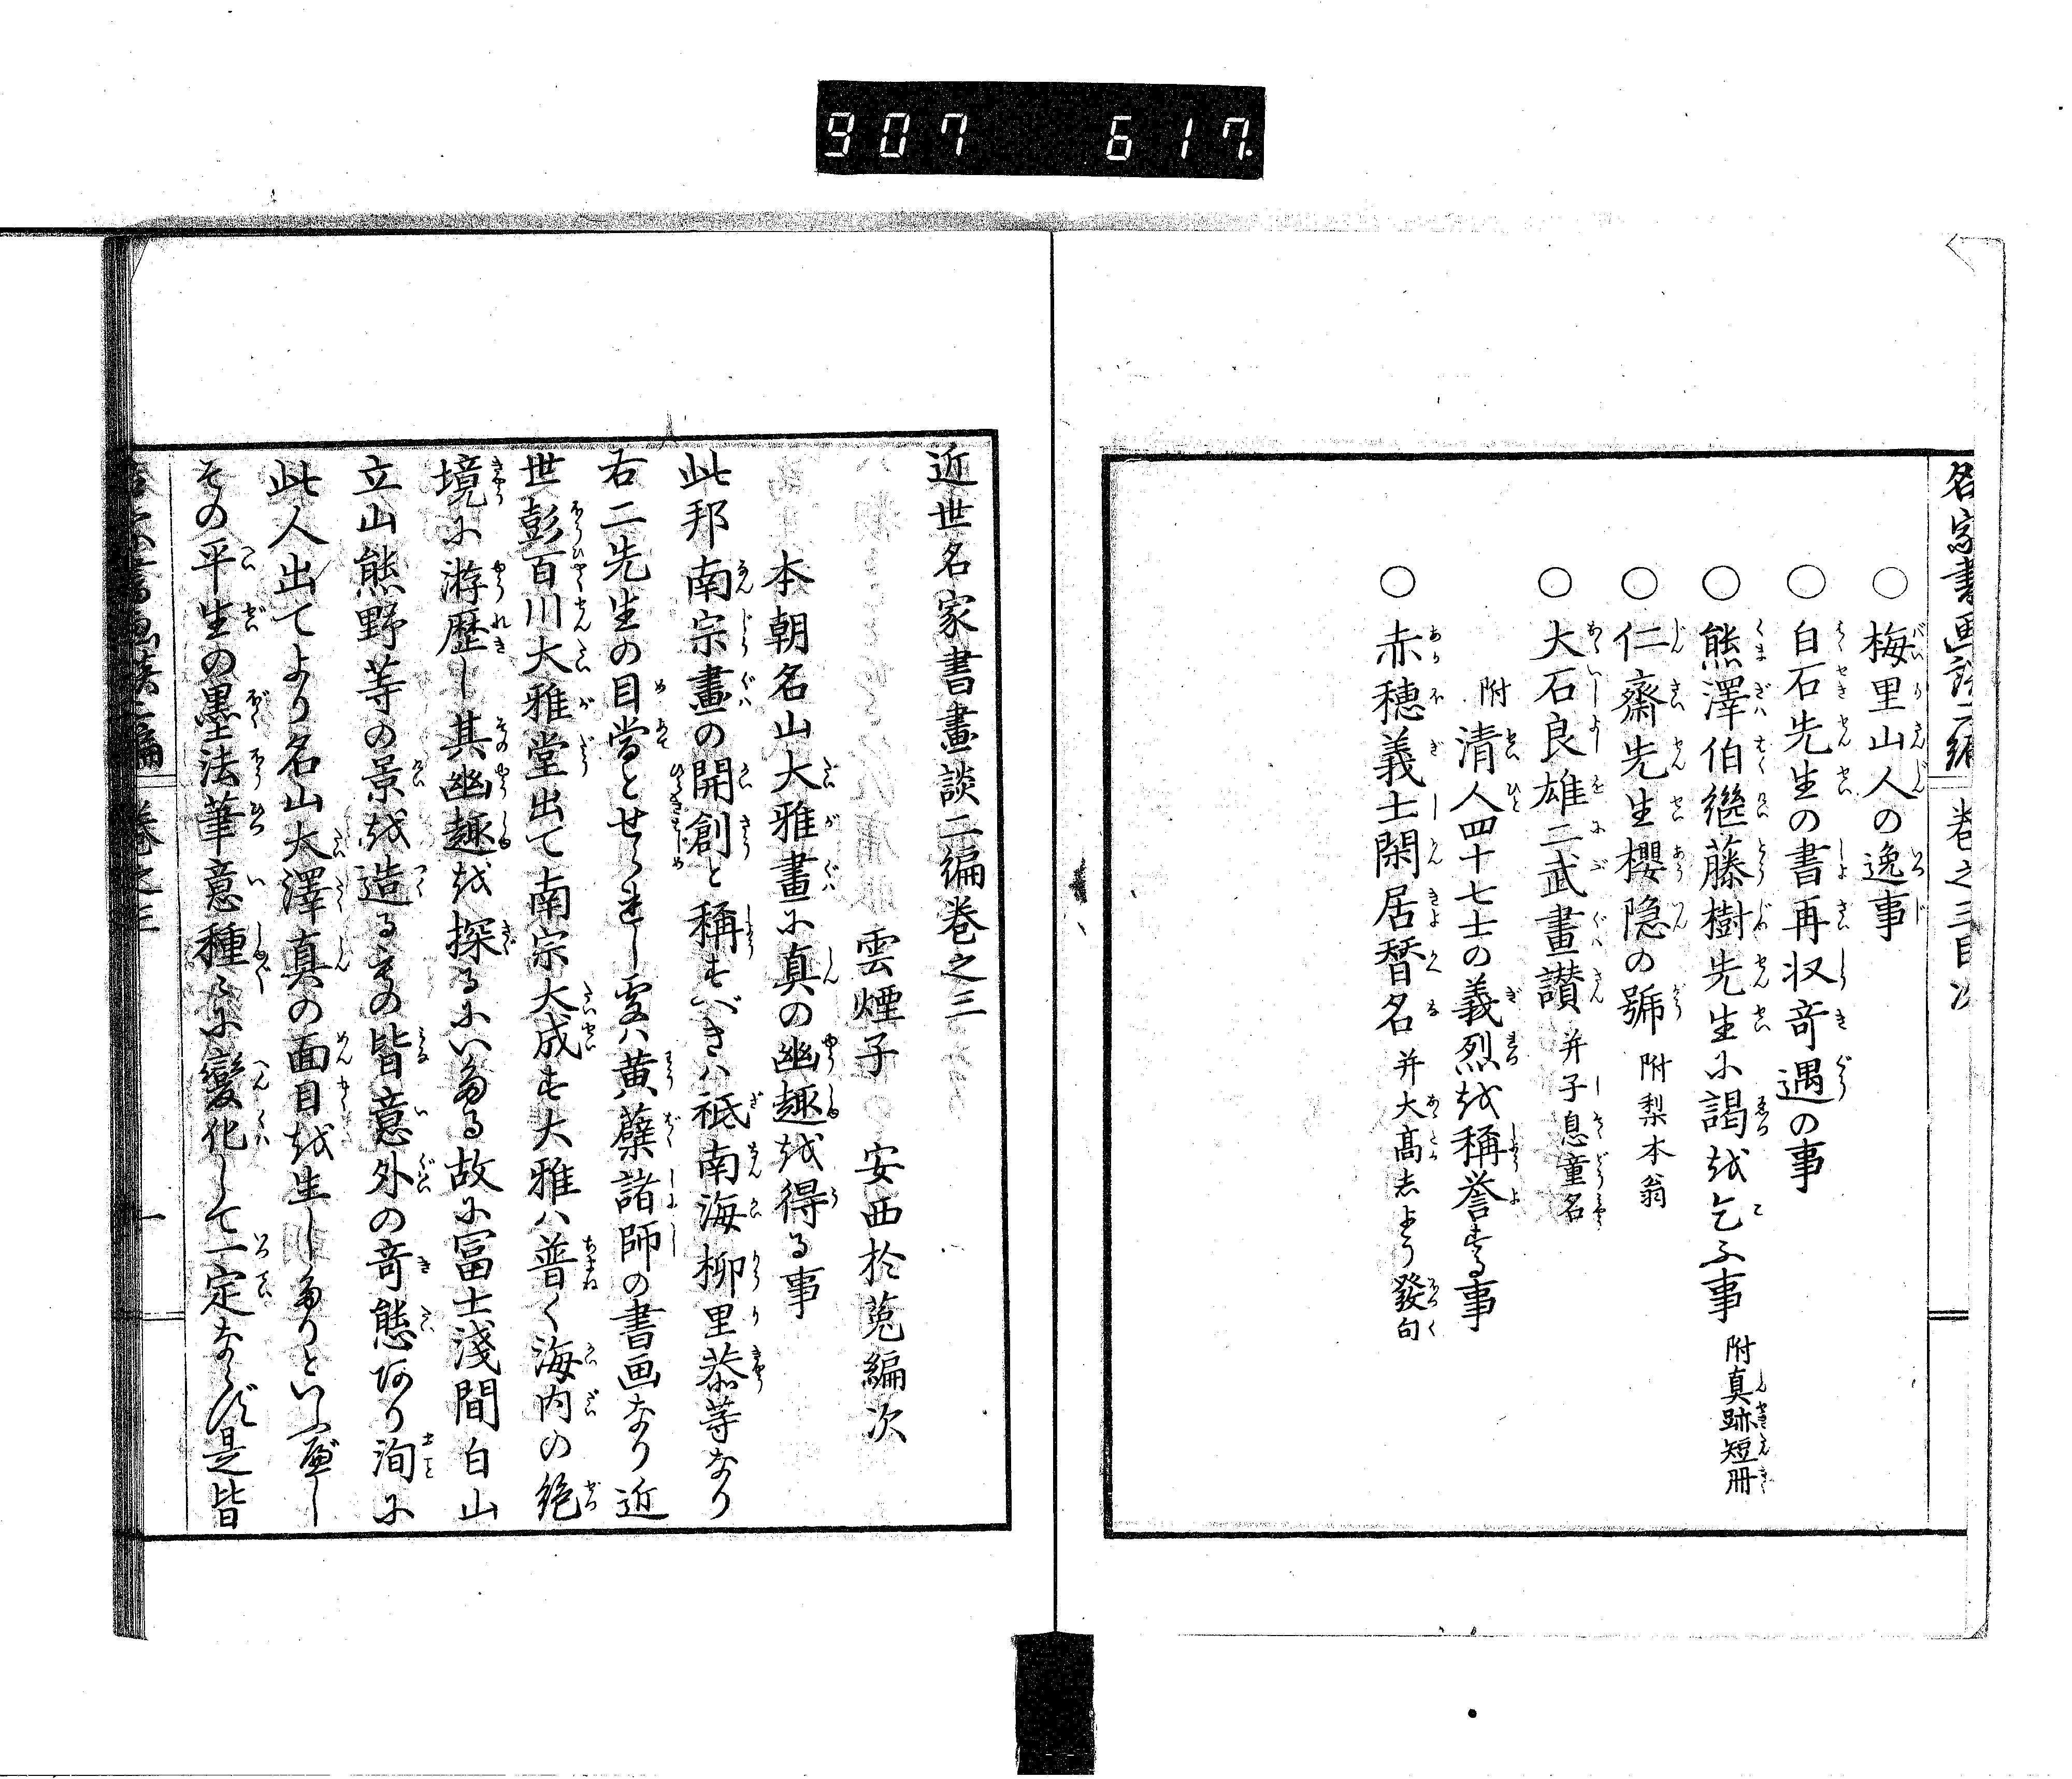 907 617.
名家書画談二編 巻之三目次
○梅里山人の逸事
○白石先生の書再収奇遇の事
○熊澤伯繼藤樹先生に謁を乞ふ事 附真跡短冊
○仁齋先生櫻隠の號 附梨本翁
○大石良雄二武畫讃 并子息童名
附 清人四十七士の義烈を稱誉する事
○赤穂義士閑居替名 并大髙志よう發句
近世名家書畫談二編巻之三
雲煙子 安西於菟編次
本朝名山大雅畫に真の幽趣を得る事
此邦南宗畫の開創と稱すべきハ祗南海柳里恭等なり
右二先生の目當とせられし處ハ黄蘗諸師の書画なり近
世彭百川大雅堂出て南宗大成す大雅ハ普く海内の絶
境に游歴し其幽趣を探るにいたる故に冨士淺間白山
立山熊野等の景を造るもの皆意外の奇態あり洵に
此人出てより名山大澤真の面目を生したりといふべし
その平生の墨法筆意種〻に變化して一定ならず是皆
名家書画談二編 巻之三 一